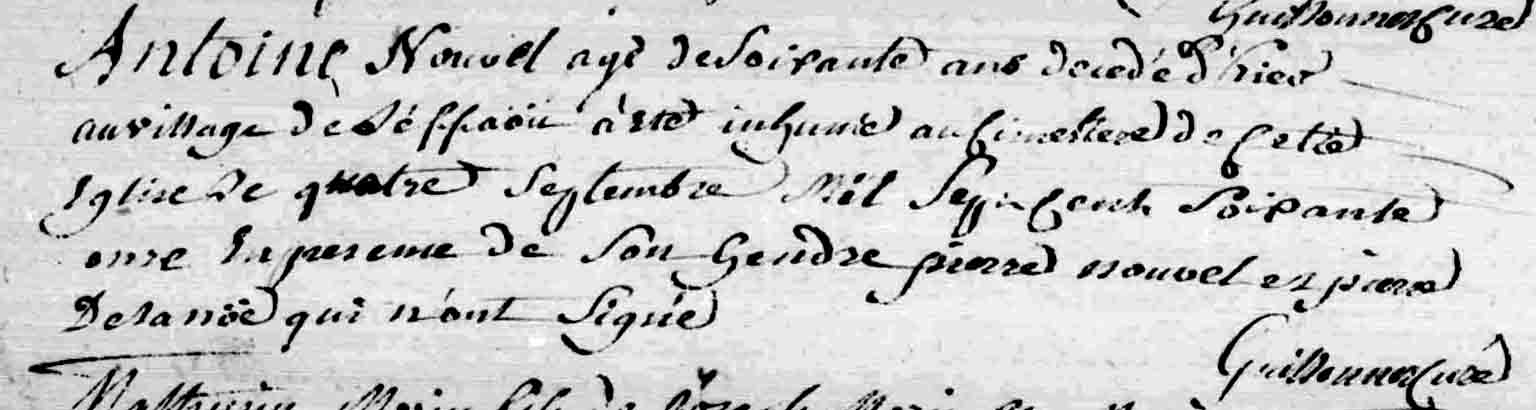 Guillonner Curé
Antoine Nouvel agé de Soixante ans decedé d'hier
au village de à été inhumé au Cimetiere de Cette
Eglise le quatre Septembre Mil Sept Cent Soixante
onze En presence de Son Gendre pierre nouvel et pierre
Delanöe qui n'ont Signé
Guillonner Curé
Mathurin Morin fils de Joseph Morin